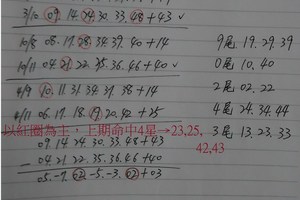 3/10 09. 14. 24. 30. 33. 48 + 43 ✓
10/8 08. 17. 28. 34. 39. 40 + 14
9尾 19. 29. 39
10/11 04. 21. 22. 35. 36. 46 + 40 ✓
0尾 10. 40
4/9 10. 11. 31. 34. 37. 38 + 14
2尾 02. 22
4/11 06. 17. 18. 19. 20. 42 + 25
4尾 24. 34. 44
以紅圈為主，上期命中4星→23,25,
3尾 13. 23. 33
42,43
09. 14. 24. 30. 33. 48 + 43
— 04. 21. 22. 35. 36. 46 + 40
05. -7. 02. -5. -3. 02 + 03